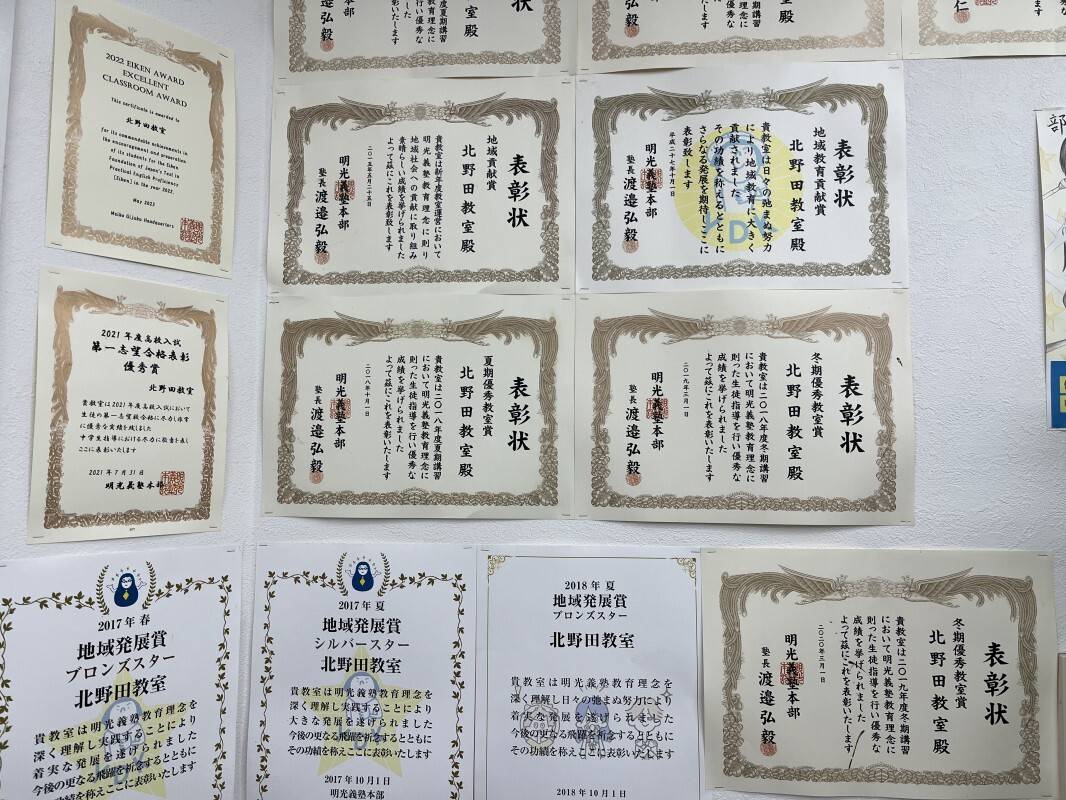 表彰状
殿
を行い優秀な
ました
表彰いたします
塾長 渡邉弘毅
表彰状
殿
塾長 渡邉弘毅
仁
2022 EIKEN AWARD
EXCELLENT
CLASSROOM AWARD
This certificate is awarded to
北野田教室
for its commendable achievements in
the encouragement and preparation
of its students for the Eiken
Foundation of Japan's Test in
Practical English Proficiency
(Eiken) in the year 2022
May 2023
Meiko Gijuku Headquarters
表彰状
地域貢献賞
北野田教室殿
貴教室は新年度教室運営において
明光義塾教育理念に則り
地域社会への貢献に取り組み
素晴らしい成績を挙げられました
よって茲にこれを表彰致します
二〇一五年五月二十五日
明光義塾本部
塾長 渡邉弘毅
表彰状
地域教育貢献賞
北野田教室殿
貴教室は日々の弛まぬ努力
により地域教育に大きく
貢献されました
その功績を称えるとともに
さらなる発展を期待しここに
表彰致します
平成二十七年十月一日
明光義塾本部
塾長 渡邉弘毅
YDK
2021年度高校入試
第一志望合格表彰
優秀賞
北野田教室
貴教室は2021年度高校入試において
生徒の第一志望校合格に尽力し非常
に優秀な実績を残しました
中学生指導における尽力に敬意を表し
ここに表彰いたします
2021年7月31日
明光義塾本部
表彰状
夏期優秀教室賞
北野田教室殿
貴教室は二〇一八年度夏期講習
において明光義塾教育理念に
則った生徒指導を行い優秀な
成績を挙げられました
よって茲にこれを表彰いたします
二〇一八年十月一日
明光義塾本部
塾長 渡邉弘毅
表彰状
冬期優秀教室賞
北野田教室殿
貴教室は二〇一八年度冬期講習
において明光義塾教育理念に
則った生徒指導を行い優秀な
成績を挙げられました
よって茲にこれを表彰いたします
二〇一九年三月一日
明光義塾本部
塾長 渡邉弘毅
部
2017年 春
地域発展賞
ブロンズスター
北野田教室
貴教室は明光義塾教育理念を
深く理解し実践することにより
着実な発展を遂げられました
今後の更なる飛躍を祈念するとともに
その功績を称えここに表彰いたします
2017年 夏
地域発展賞
シルバースター
北野田教室
貴教室は明光義塾教育理念を
深く理解し実践することにより
大きな発展を遂げられました
今後の更なる飛躍を祈念するとともに
その功績を称えここに表彰いたします
2017年10月1日
明光義塾本部
2018年 夏
地域発展賞
ブロンズスター
北野田教室
貴教室は明光義塾教育理念を
深く理解し日々の弛まぬ努力により
着実な発展を遂げられました
今後の更なる飛躍を祈念するとともに
その功績を称えここに表彰いたします
2018年10月1日
表彰状
冬期優秀教室賞
北野田教室殿
貴教室は二〇一九年度冬期講習
において明光義塾教育理念に
則った生徒指導を行い優秀な
成績を挙げられました
よって茲にこれを表彰いたします
二〇二〇年三月一日
明光義塾本部
塾長 渡邉弘毅